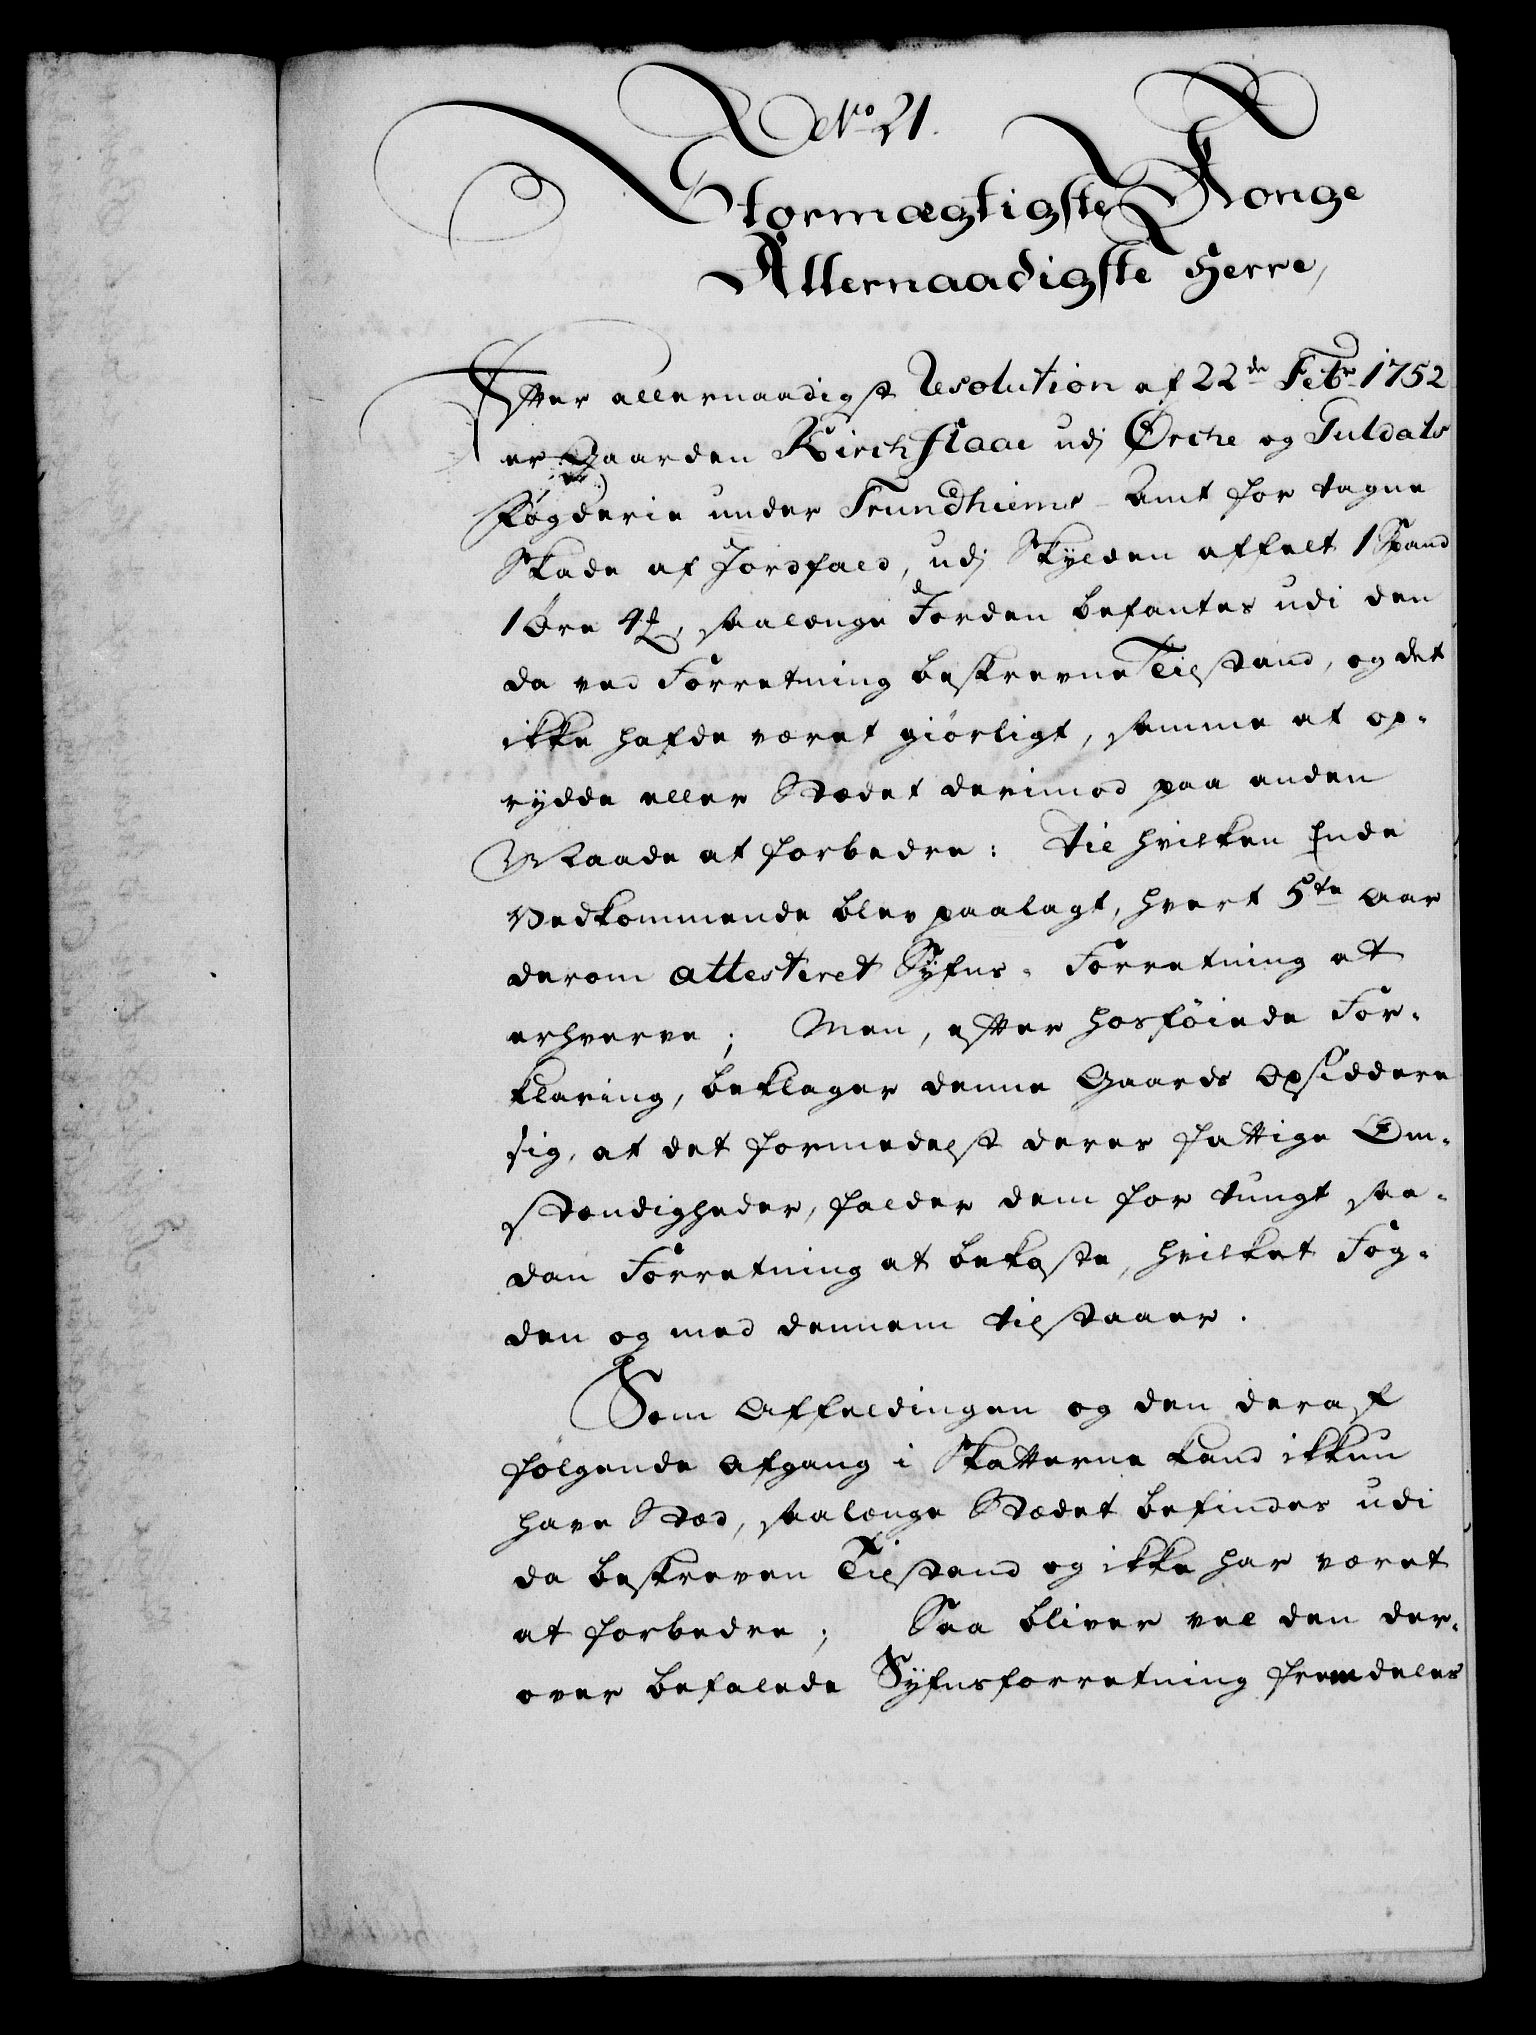 No 21.
Stormægtigste Konge
Allernaadigste Herre,
Efter allernaadigst Resolution af 22de Febr 1752
er Gaarden Kirchflaae udj Ørche og Guldals
Fogderie under Trundhiems Amt for tagne
Skade af Jordfald, udj Skylden affelt 1 Spand
1 Øre 4 , saalenge Jorden befantes udi den
da ved Forretning beskrevne Tilstand, og det
ikke hafde været giørligt, samme at op-
rydde eller Stædet derimod paa anden
Maade at forbedre: til hvilken Ende
Vedkommende blev paalagt, hvert 5te Aar
derom attesteret Syfns-Forretning at
erhverve; Men, efter hosføiede For-
klaring, beklager denne Gaards Opsiddere
sig, at det formedelst deres fattige Om-
stændigheder, falder dem for tungt saa-
dan Forretning at bekoste, hvilket Fog-
den og med dennem tilstaaer.
Som Affældingen og den deraf
følgende Afgang i Skatterne kand ikkun
have Stæd, saalænge Stædet befindes udi
da beskreven Tilstand og ikke har været
at forbedre; Saa bliver vel den der-
over befalede Syfnsforretning fremdeles